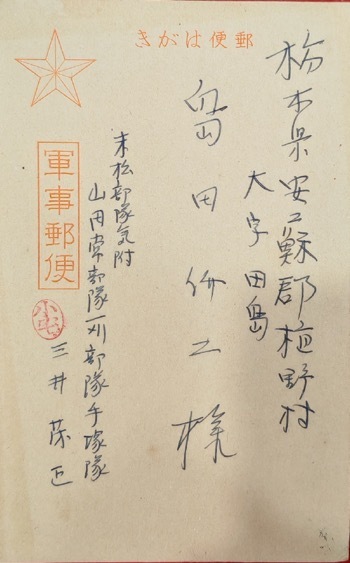 郵便はがき
栃木県安蘇郡植野村
大字田島
島田伊工様
軍事郵便
末松部隊気附
山内常部隊刈部隊手塚隊
三井茂